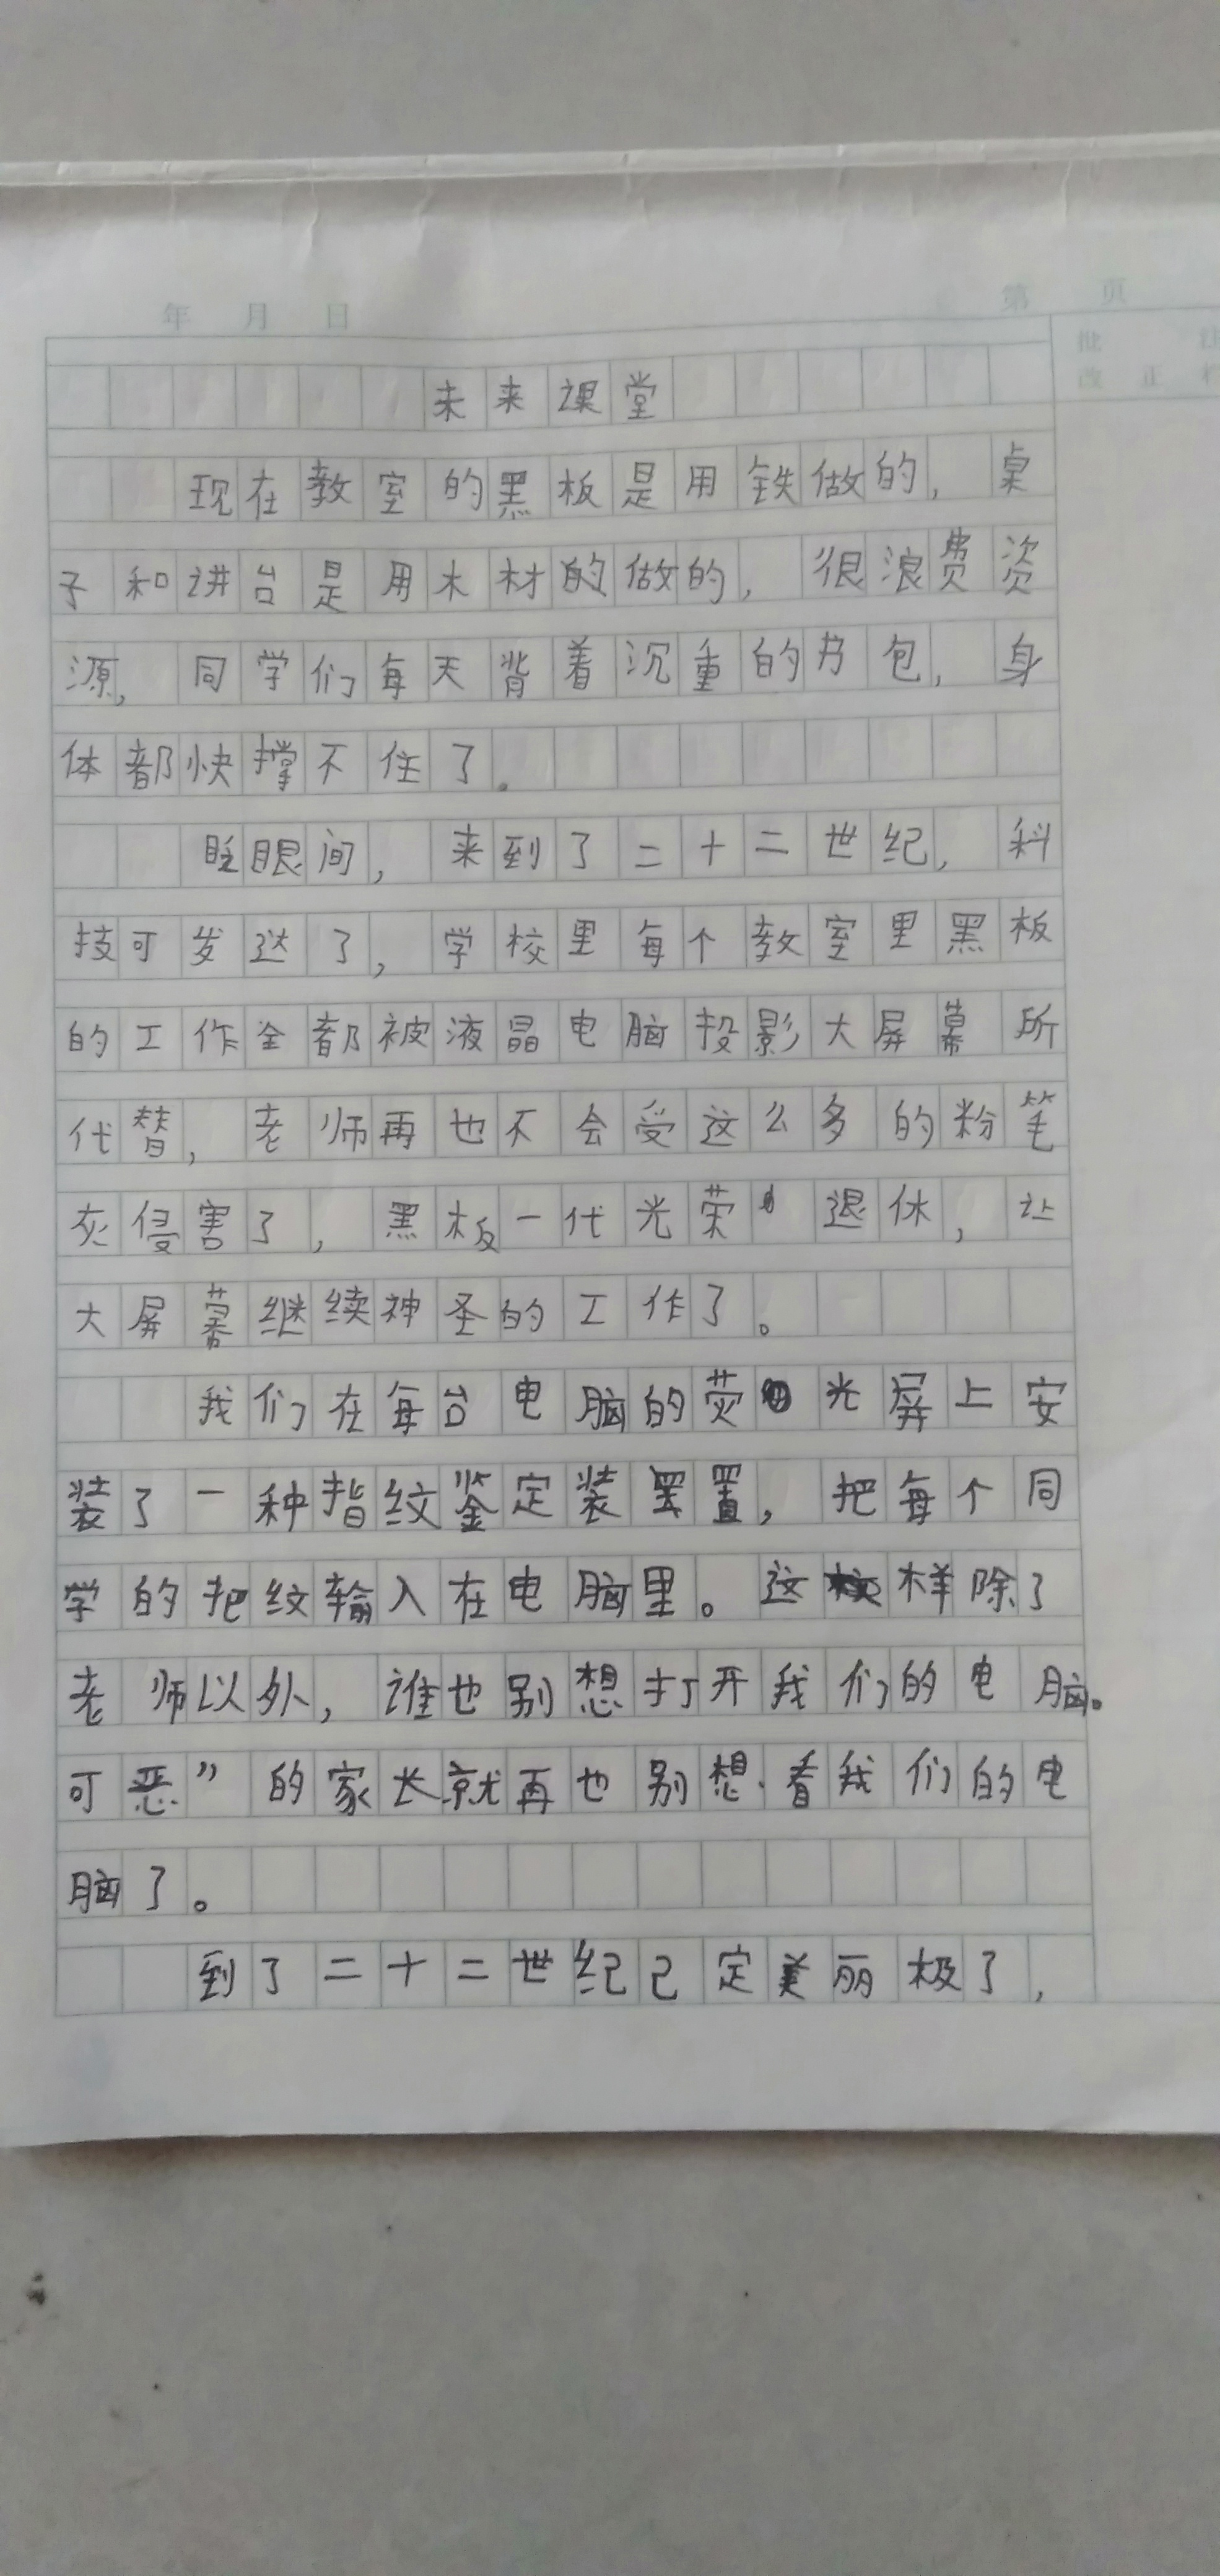 年 月 日
第 页
批 注
改 正 栏
未来课堂
现在教室的黑板是用铁做的，桌
子和讲台是用木材的做的，很浪费资
源，同学们每天背着沉重的书包，身
体都快撑不住了。
眨眼间，来到了二十二世纪，科
技可发达了，学校里每个教室里黑板
的工作全都被液晶电脑投影大屏幕所
代替，老师再也不会受这么多的粉笔
灰侵害了，黑板一代光荣退休，让
大屏幕继续神圣的工作了。
我们在每台电脑的荧光屏上安
装了一种指纹鉴定装置，把每个同
学的把纹输入在电脑里。这样除了
老师以外，谁也别想打开我们的电脑。
可恶”的家长就再也别想看我们的电
脑了。
到了二十二世纪己定美丽极了，